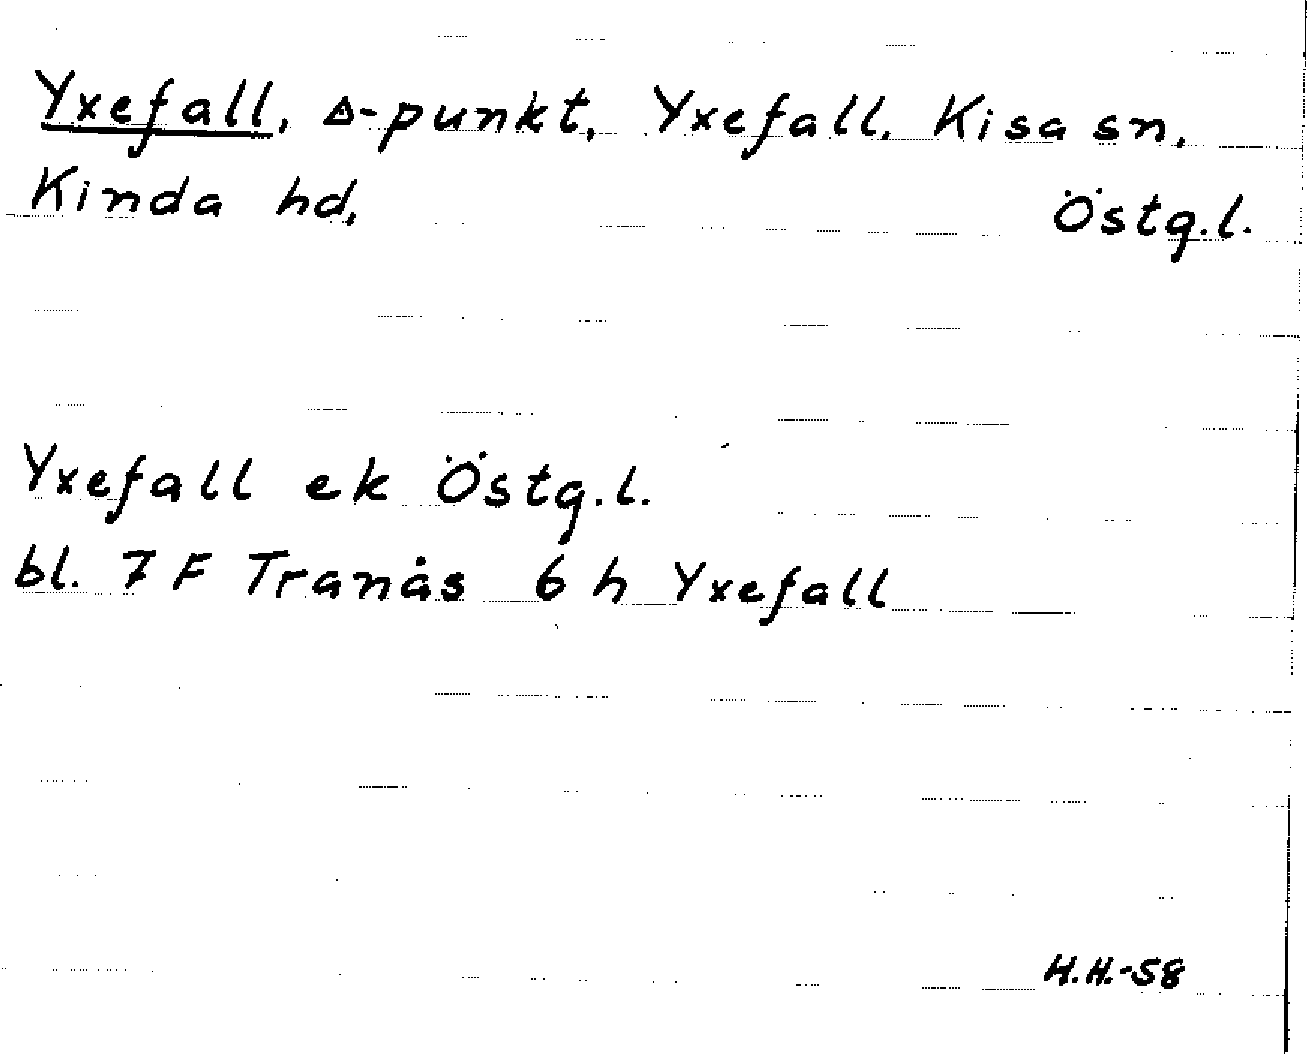 Yxefall, Δ-punkt, Yxefall, Kisa sn,
Kinda hd, Östg.l.
Yxefall ek Östg.l.
bl. 7 F Tranås 6 h Yxefall
H.H.-58